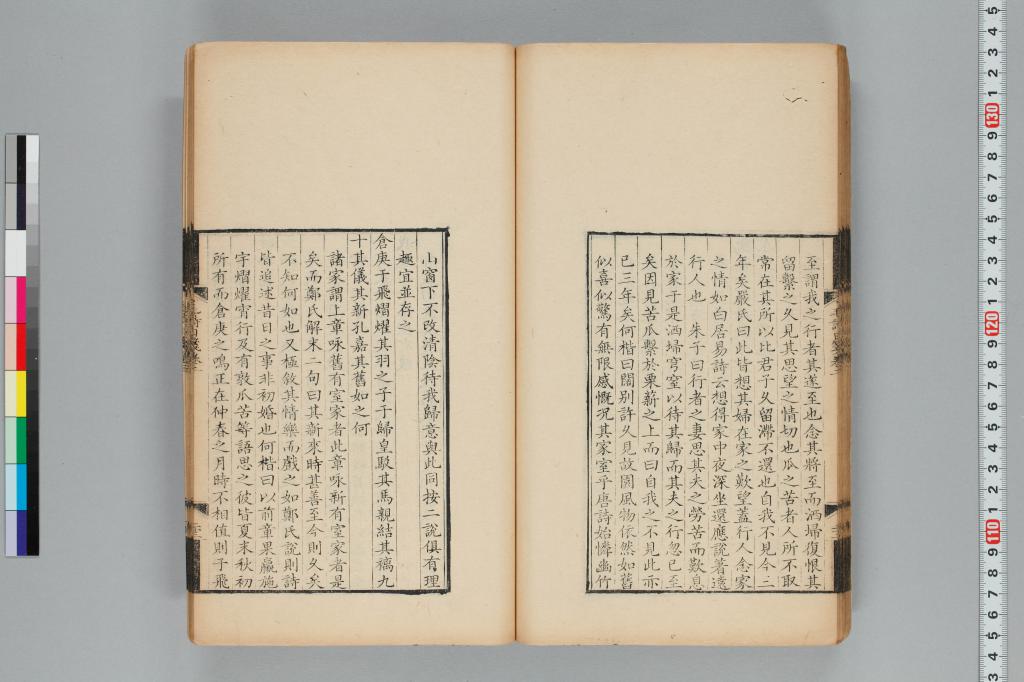 至謂我之行者其遂至也念其將至而洒埽復恨其
留繫之久見其思望之情切也瓜之苦者人所不取
常在其所以比君子久留滯不還也自我不見今三
年矣嚴氏曰此皆想其婦在家之歎望蓋行人念家
之情如白居易詩云想得家中夜深坐還應說著遠
行人也 朱子曰行者之妻思其夫之勞苦而歎息
於家于是洒埽穹室以待其歸而其夫之行忽已至
矣因見苦瓜繫於栗薪之上而曰自我之不見此亦
已三年矣何楷曰闊別許久見故園風物依然如舊
似喜似驚有無限感慨况其家室乎唐詩始憐幽竹
山窗下不改清陰待我歸意與此同按二說俱有理
趣宜並存之
倉庚于飛熠燿其羽之子于歸皇駁其馬親結其縭九
十其儀其新孔嘉其舊如之何
諸家謂上章咏舊有室家者此章咏新有室家者是
矣而鄭氏解末二句曰其新來時甚善至今則久矣
不知何如也又極敘其情樂而戲之如鄭氏說則詩
皆追述昔日之事非初婚也何楷曰以前章果臝施
宇熠燿宵行及有敦瓜苦等語思之彼皆夏末秋初
所有而倉庚之鳴正在仲春之月時不相值則于飛